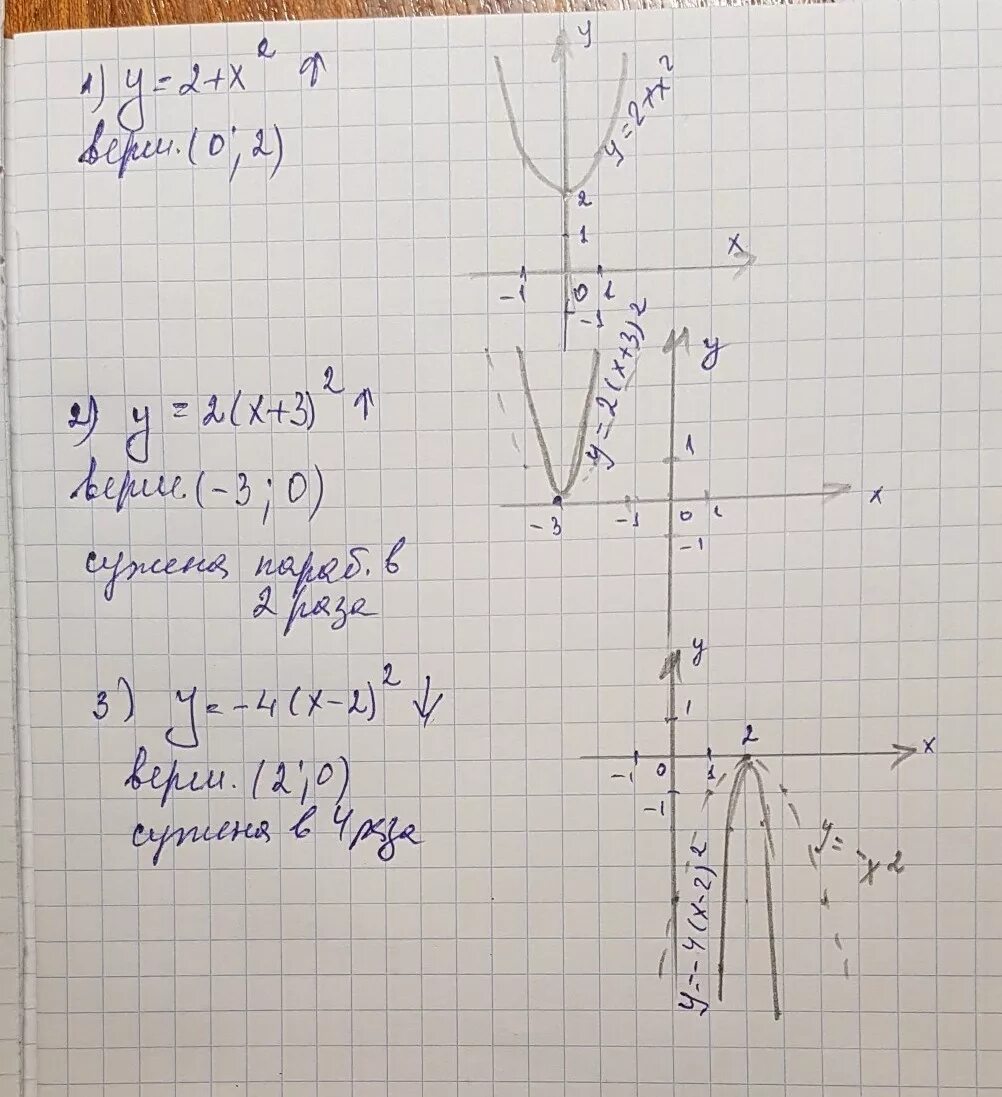 1) y = 2+x² ↑
верш. (0; 2)
y
y = 2+x²
2
1
x
-1 0 1
-1
2) y = 2(x+3)² ↑
верш. (-3; 0)
сужена параб. в
2 раза
y
y = 2(x+3)²
1
x
-3 -1 0 1
-1
3) y = -4(x-2)² ↓
верш. (2; 0)
сужена в 4 раза
y
1
2
x
-1 0 1
-1
y = -x²
y = -4(x-2)²